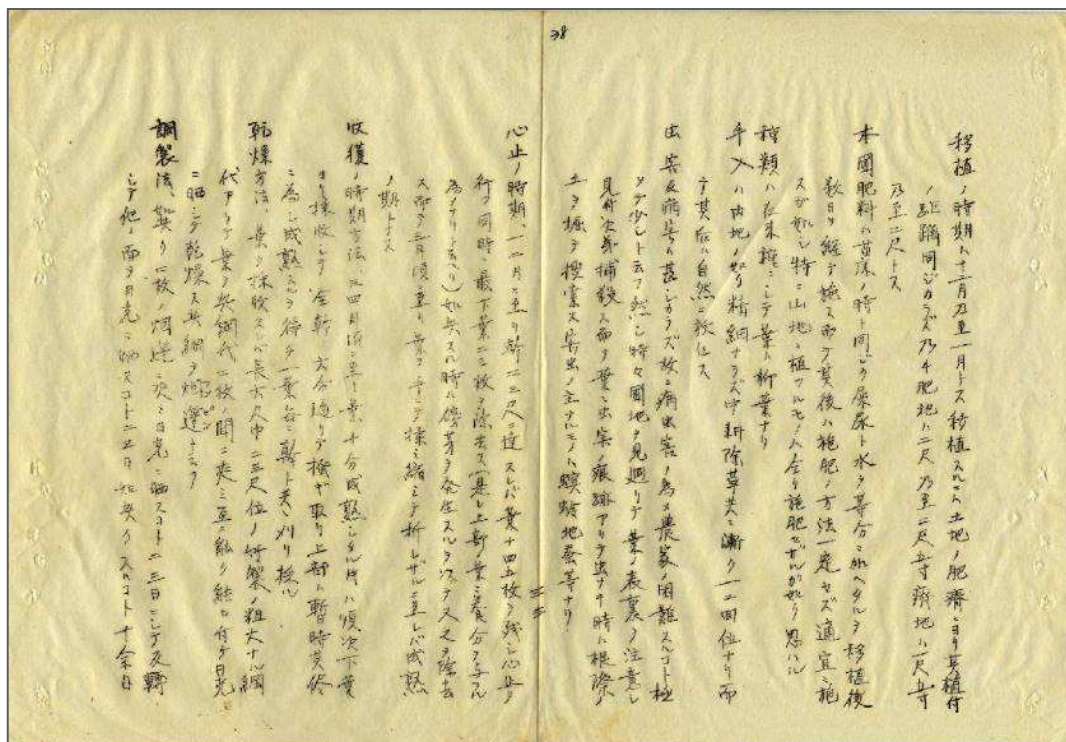 38
移植ノ時期ハ十二月乃至一月トス移植スルニハ土地ノ肥瘠ニヨリ其植付
ノ距隔同ジカラズ乃チ肥地ハ二尺乃至二尺五寸瘠地ハ一尺五寸
乃至二尺トス
本圃肥料ハ苗床ノ時ト同ジク屎尿ト水ヲ等分ニ和ヘタルヲ移植後
数日ヲ経テ施ス而テ其後ハ施肥ノ方法一定セズ適宜ニ施
スガ如シ特ニ山地ニ植ツルモノハ全ク施肥セザルガ如ク思ハル
種類ハ在来種ニシテ葉ハ柳葉ナリ
手入ハ内地ノ如ク精細ナラズ中耕除草共ニ漸ク一二回位ナリ而
テ其后ハ自然ニ放任ス
虫害及病害ハ甚シカラズ故ニ病虫害ノ為メ農家ノ困難スルコト極
メテ少シト云フ然シ時々圃地ヲ見廻リテ葉ノ表裏ヲ注意シ
見付次第捕殺ス而テ葉ニ虫害ノ痕跡アリテ虫ナキ時ハ根際ノ
土ヲ堀テ捜索ス害虫ノ主ナルモノハ螟蛉地蚕等ナリ
心止ノ時期、一二月ニ至リ幹一二三尺ニ達スレバ葉十四五枚ヲ残シ心止ヲ
行フ同時ニ最下葉二三枚ヲ除去ス(是レ上部ノ葉ニ養分ヲ与フル
為メナリト云ヘリ)如此スル時ハ傍芽ヲ発生スルヲ以テ又之ヲ除去
ス而テ三月頃ニ至リ葉ヲ
ノ期トス
収穫ノ時期方法、三四月頃ニ至リ葉十分成熟シタル片ハ順次下葉
ヨリ採収シテ全幹 六分通リヲ掻ギ取リ上部ハ暫時其侭
ニ為シ成熟スルヲ待チ一葉毎ニ幹ト共ニ刈リ採ル
乾燥方法、葉ヲ採収スレバ長六尺巾二三尺位ノ竹製ノ粗大ナル網
代アリテ葉ヲ其網代二枚ノ間ニ夾ミ互ニ能ク結ヒ付テ日光
ニ晒シテ乾燥ス其網ヲ烟
調製法、
シテ他ノ面ヲ日光ニ晒スコト二三日如此クスルコト十余日